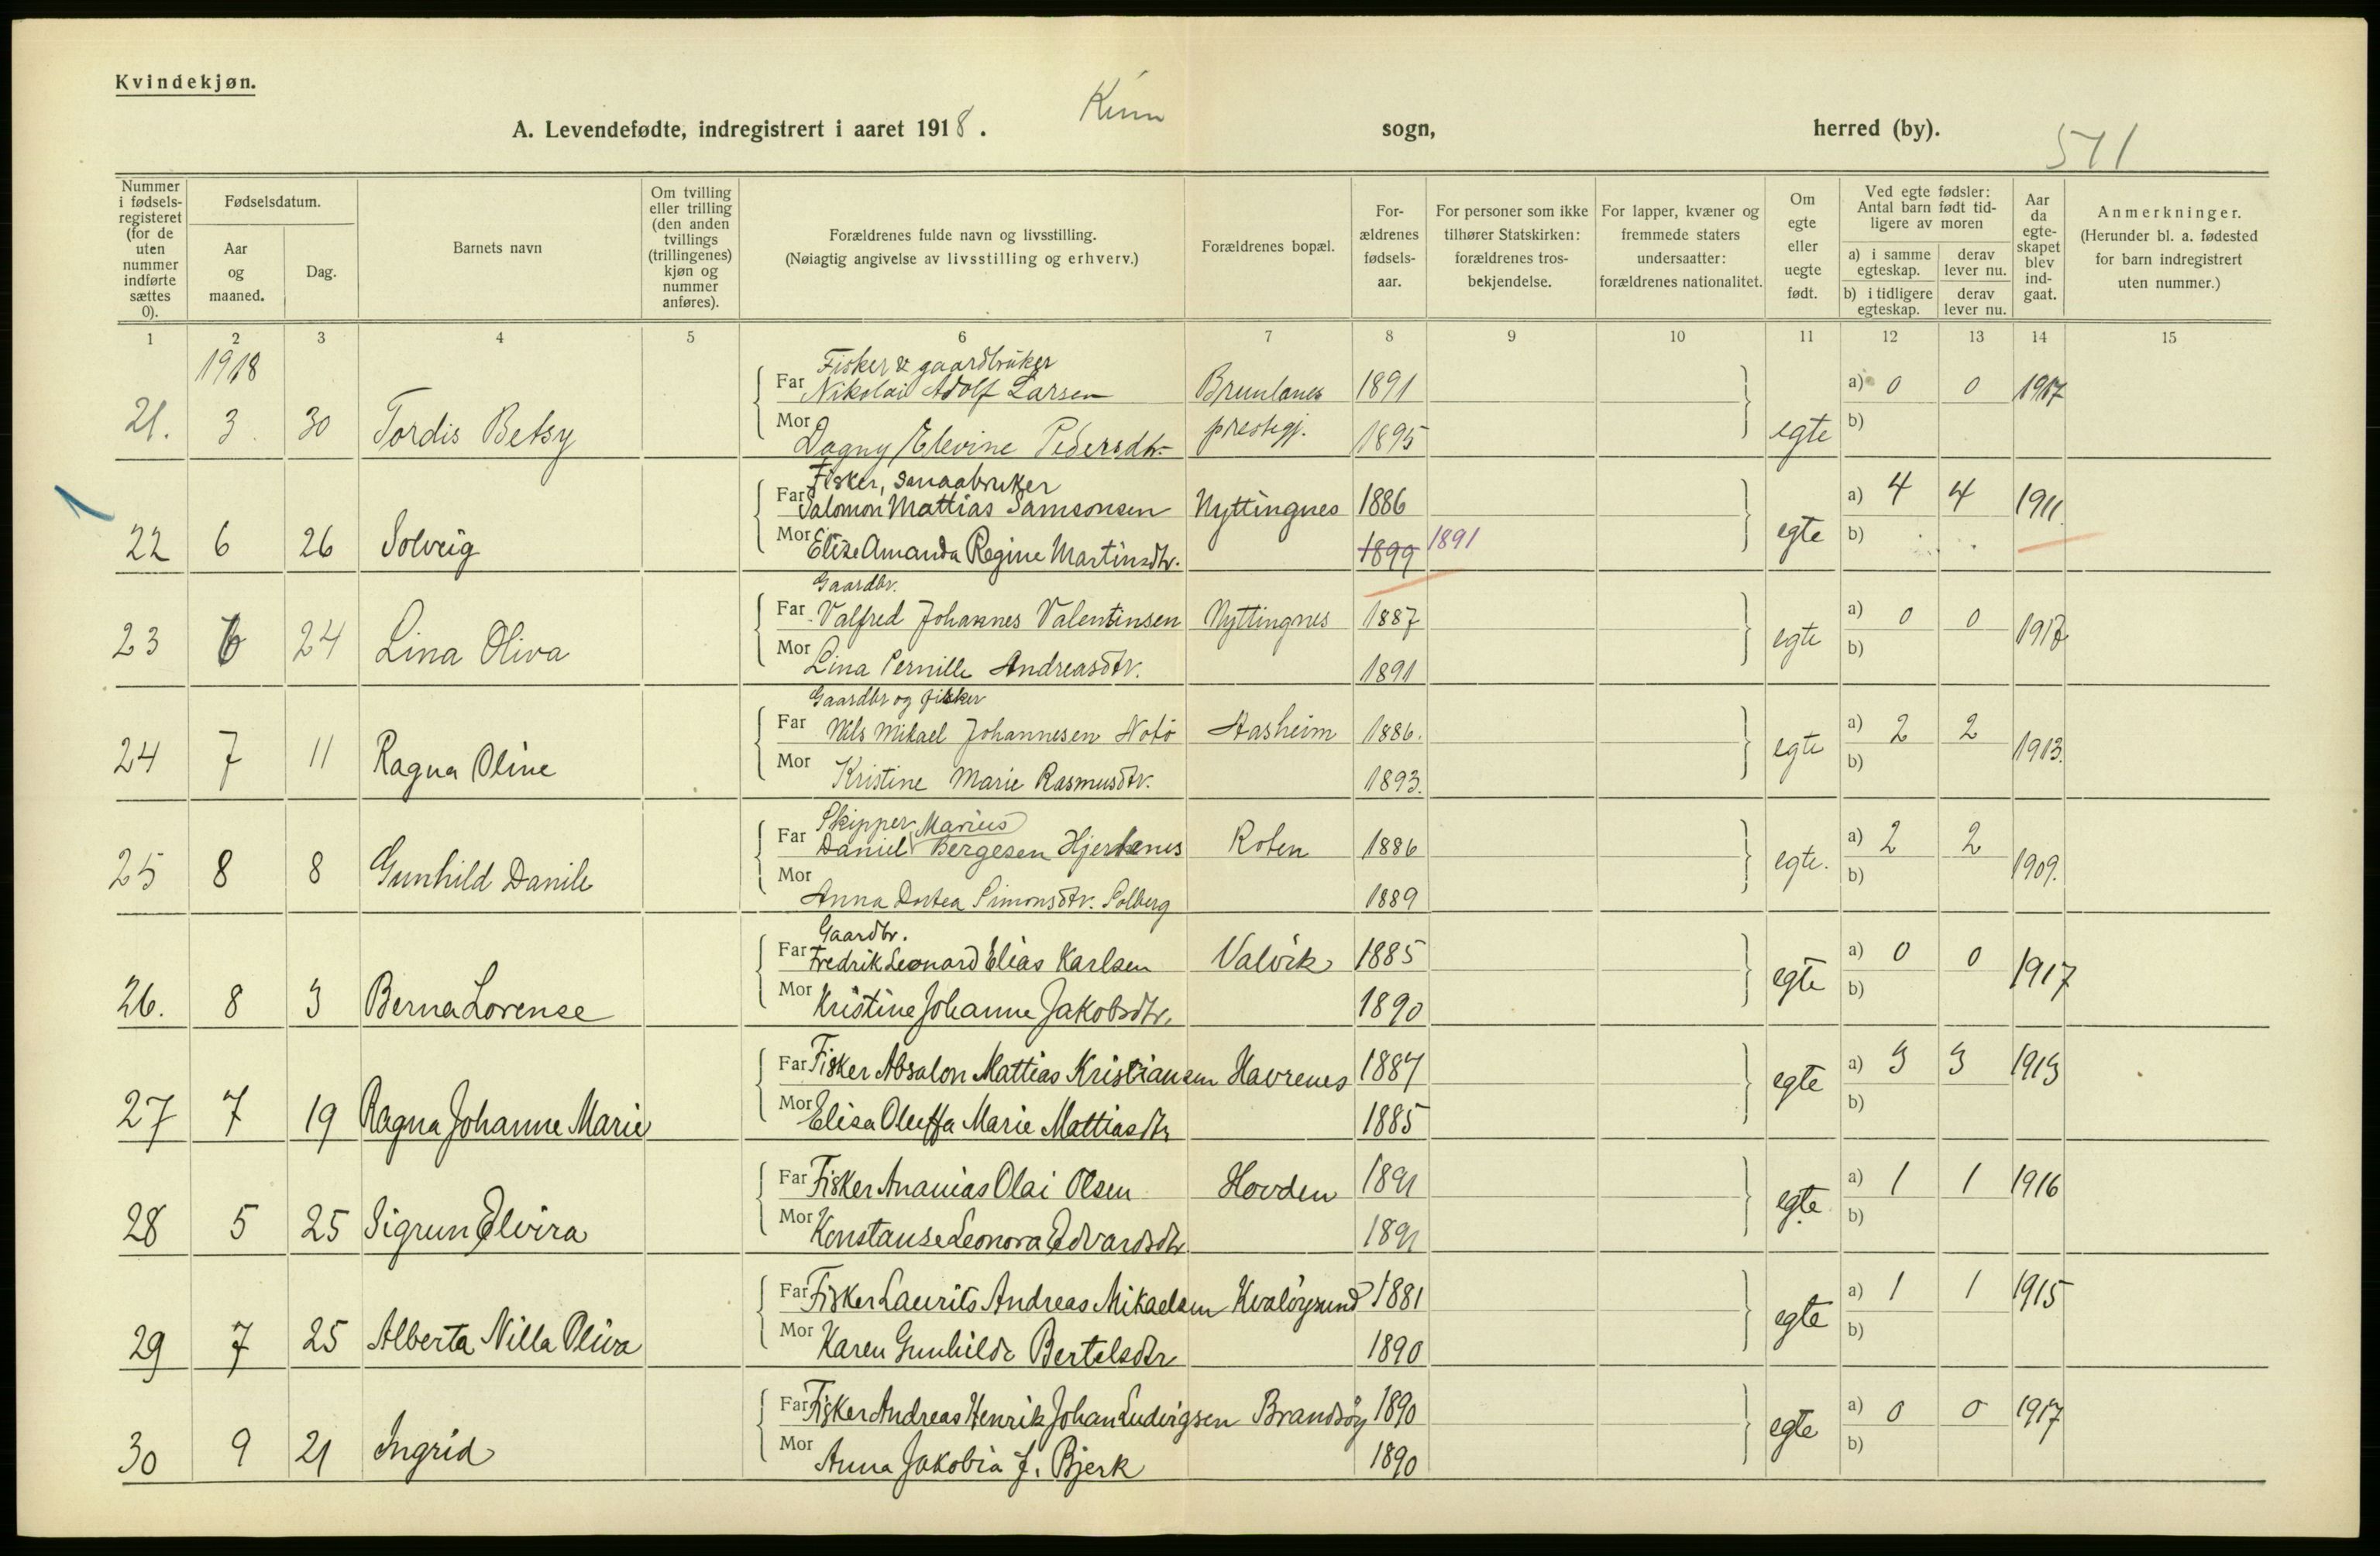 Kvindekjøn.
A. Levendefødte, indregistrert i aaret 1918. Kinn sogn, herred (by).
511
Nummer i fødsels-registeret (for de uten nummer indførte sættes 0).
Fødselsdatum.
Aar og maaned.
Dag.
Barnets navn
Om tvilling eller trilling (den anden tvillings (trillingenes) kjøn og nummer anføres).
Forældrenes fulde navn og livsstilling.
(Nøiagtig angivelse av livsstilling og erhverv.)
Forældrenes bopæl.
For-ældrenes fødsels-aar.
For personer som ikke tilhører Statskirken: forældrenes tros-bekjendelse.
For lapper, kvæner og fremmede staters undersaatter: forældrenes nationalitet.
Om egte eller uegte født.
Ved egte fødsler: Antal barn født tid-ligere av moren
a) i samme egteskap. derav lever nu.
b) i tidligere egteskap. derav lever nu.
Aar da egte-skapet blev ind-gaat.
Anmerkninger.
(Herunder bl. a. fødested for barn indregistrert uten nummer.)
1 2 3 4 5 6 7 8 9 10 11 12 13 14 15
1918
Fisker & gaardbruker
Far Nikolai Adolf Larsen Brunlanes 1891 a) 0 0 1917
21. 3. 30 Tordis Betsy Mor Dagny Elevine Pedersdtr. prestegj. 1895 egte b)
Fisker, smaabruker
Far Salomon Mattias Samsonsen Nyttingnes 1886 a) 4 4 1911.
22 6 26 Solveig Mor Elise Amanda Regine Martinsdtr. 1899 1891 egte b)
Gaardbr.
Far Valfred Johannes Valentinsen Nyttingnes 1887 a) 0 0 1917
23 6 24 Lina Oliva Mor Lina Pernille Andreasdtr. 1891 egte b)
Gaardbr og fisker
Far Nils Mikael Johannesen Notö Aasheim 1886. a) 2 2 1913.
24 7 11 Ragna Oline Mor Kristine Marie Rasmusdtr. 1893. egte b)
Skipper Marius
Far Daniel Bergesen Hjertenes Roten 1886 a) 2 2 1909.
25 8 8 Gunhild Danile Mor Anna Dortea Simonsdtr. Solberg 1889 egte. b)
Gaardbr.
Far Fredrik Leonard Elias Karlsen Valvik 1885 a) 0 0 1917
26. 8 3 Berna Lorense Mor Kristine Johanne Jakobsdtr. 1890 egte b)
Far Fisker Absalon Mattias Kristiansen Havrenes 1887 a) 3 3 1913
27 7 19 Ragna Johanne Marie Mor Elisa Oluffa Marie Mattiasdtr 1885 egte b)
Far Fisker Ananias Olai Olsen Hovden 1891 a) 1 1 1916
28 5 25 Sigrun Elvira Mor Konstanse Leonora Edvardsdtr 1891 egte b)
Far Fisker Laurits Andreas Mikaelsen Kvalöysund 1881 a) 1 1 1915
29 7 25 Alberta Nilla Oliva Mor Karen Gunhilde Bertelsdtr 1890 egte b)
Far Fisker Andreas Henrik Johan Ludvigsen Brandsöy 1890 a) 0 0 1917
30 9 21 Ingrid Mor Anna Jakobia J. Bjerk 1890 egte b)